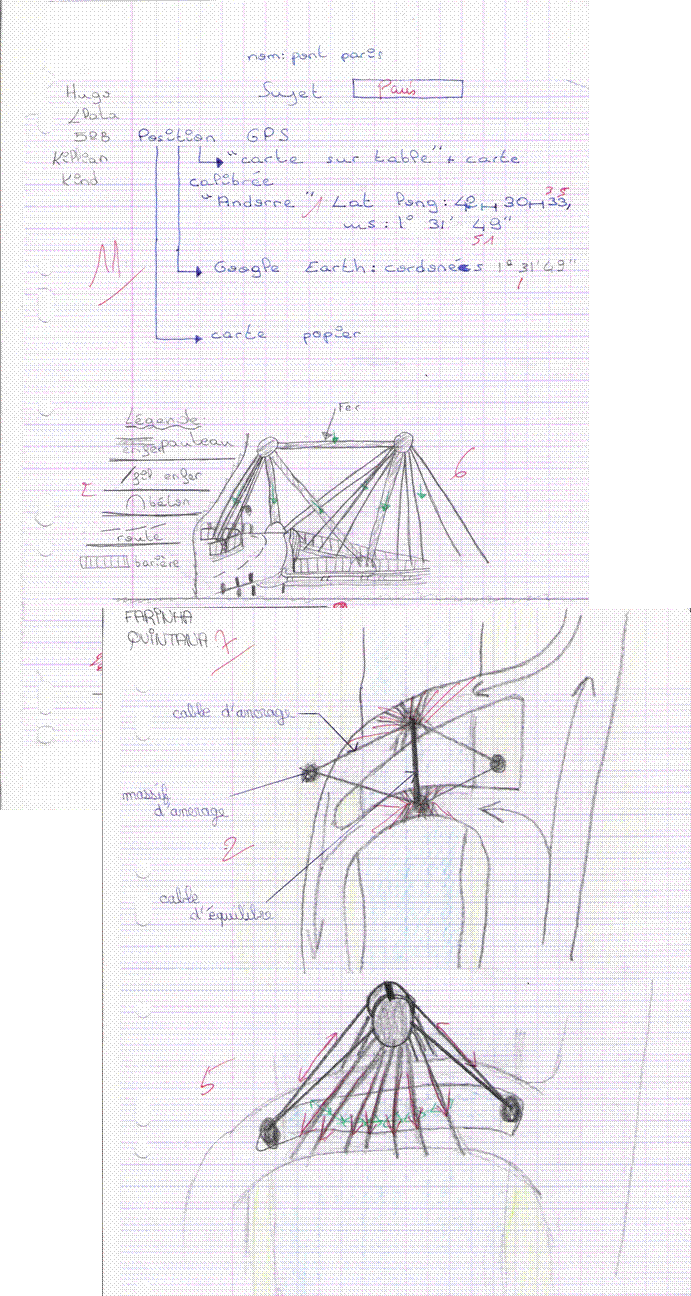 nom: pont paris
Sujet Paris
Hugo
5eB Position GPS
Kilian "carte sur table" + carte
Kind calibrée
"Andorre" Lat Long: 42 30 33,
35
ms: 1° 31' 49"
51
11
Google Earth: cordonées 1° 31' 49"
1
carte papier
Fer
Légende
en fer
béton
route
barière
2
6
FARINHA
QUINTANA 7
cable d'ancrage
massif
d'ancrage
2
cable
d'équilibre
5